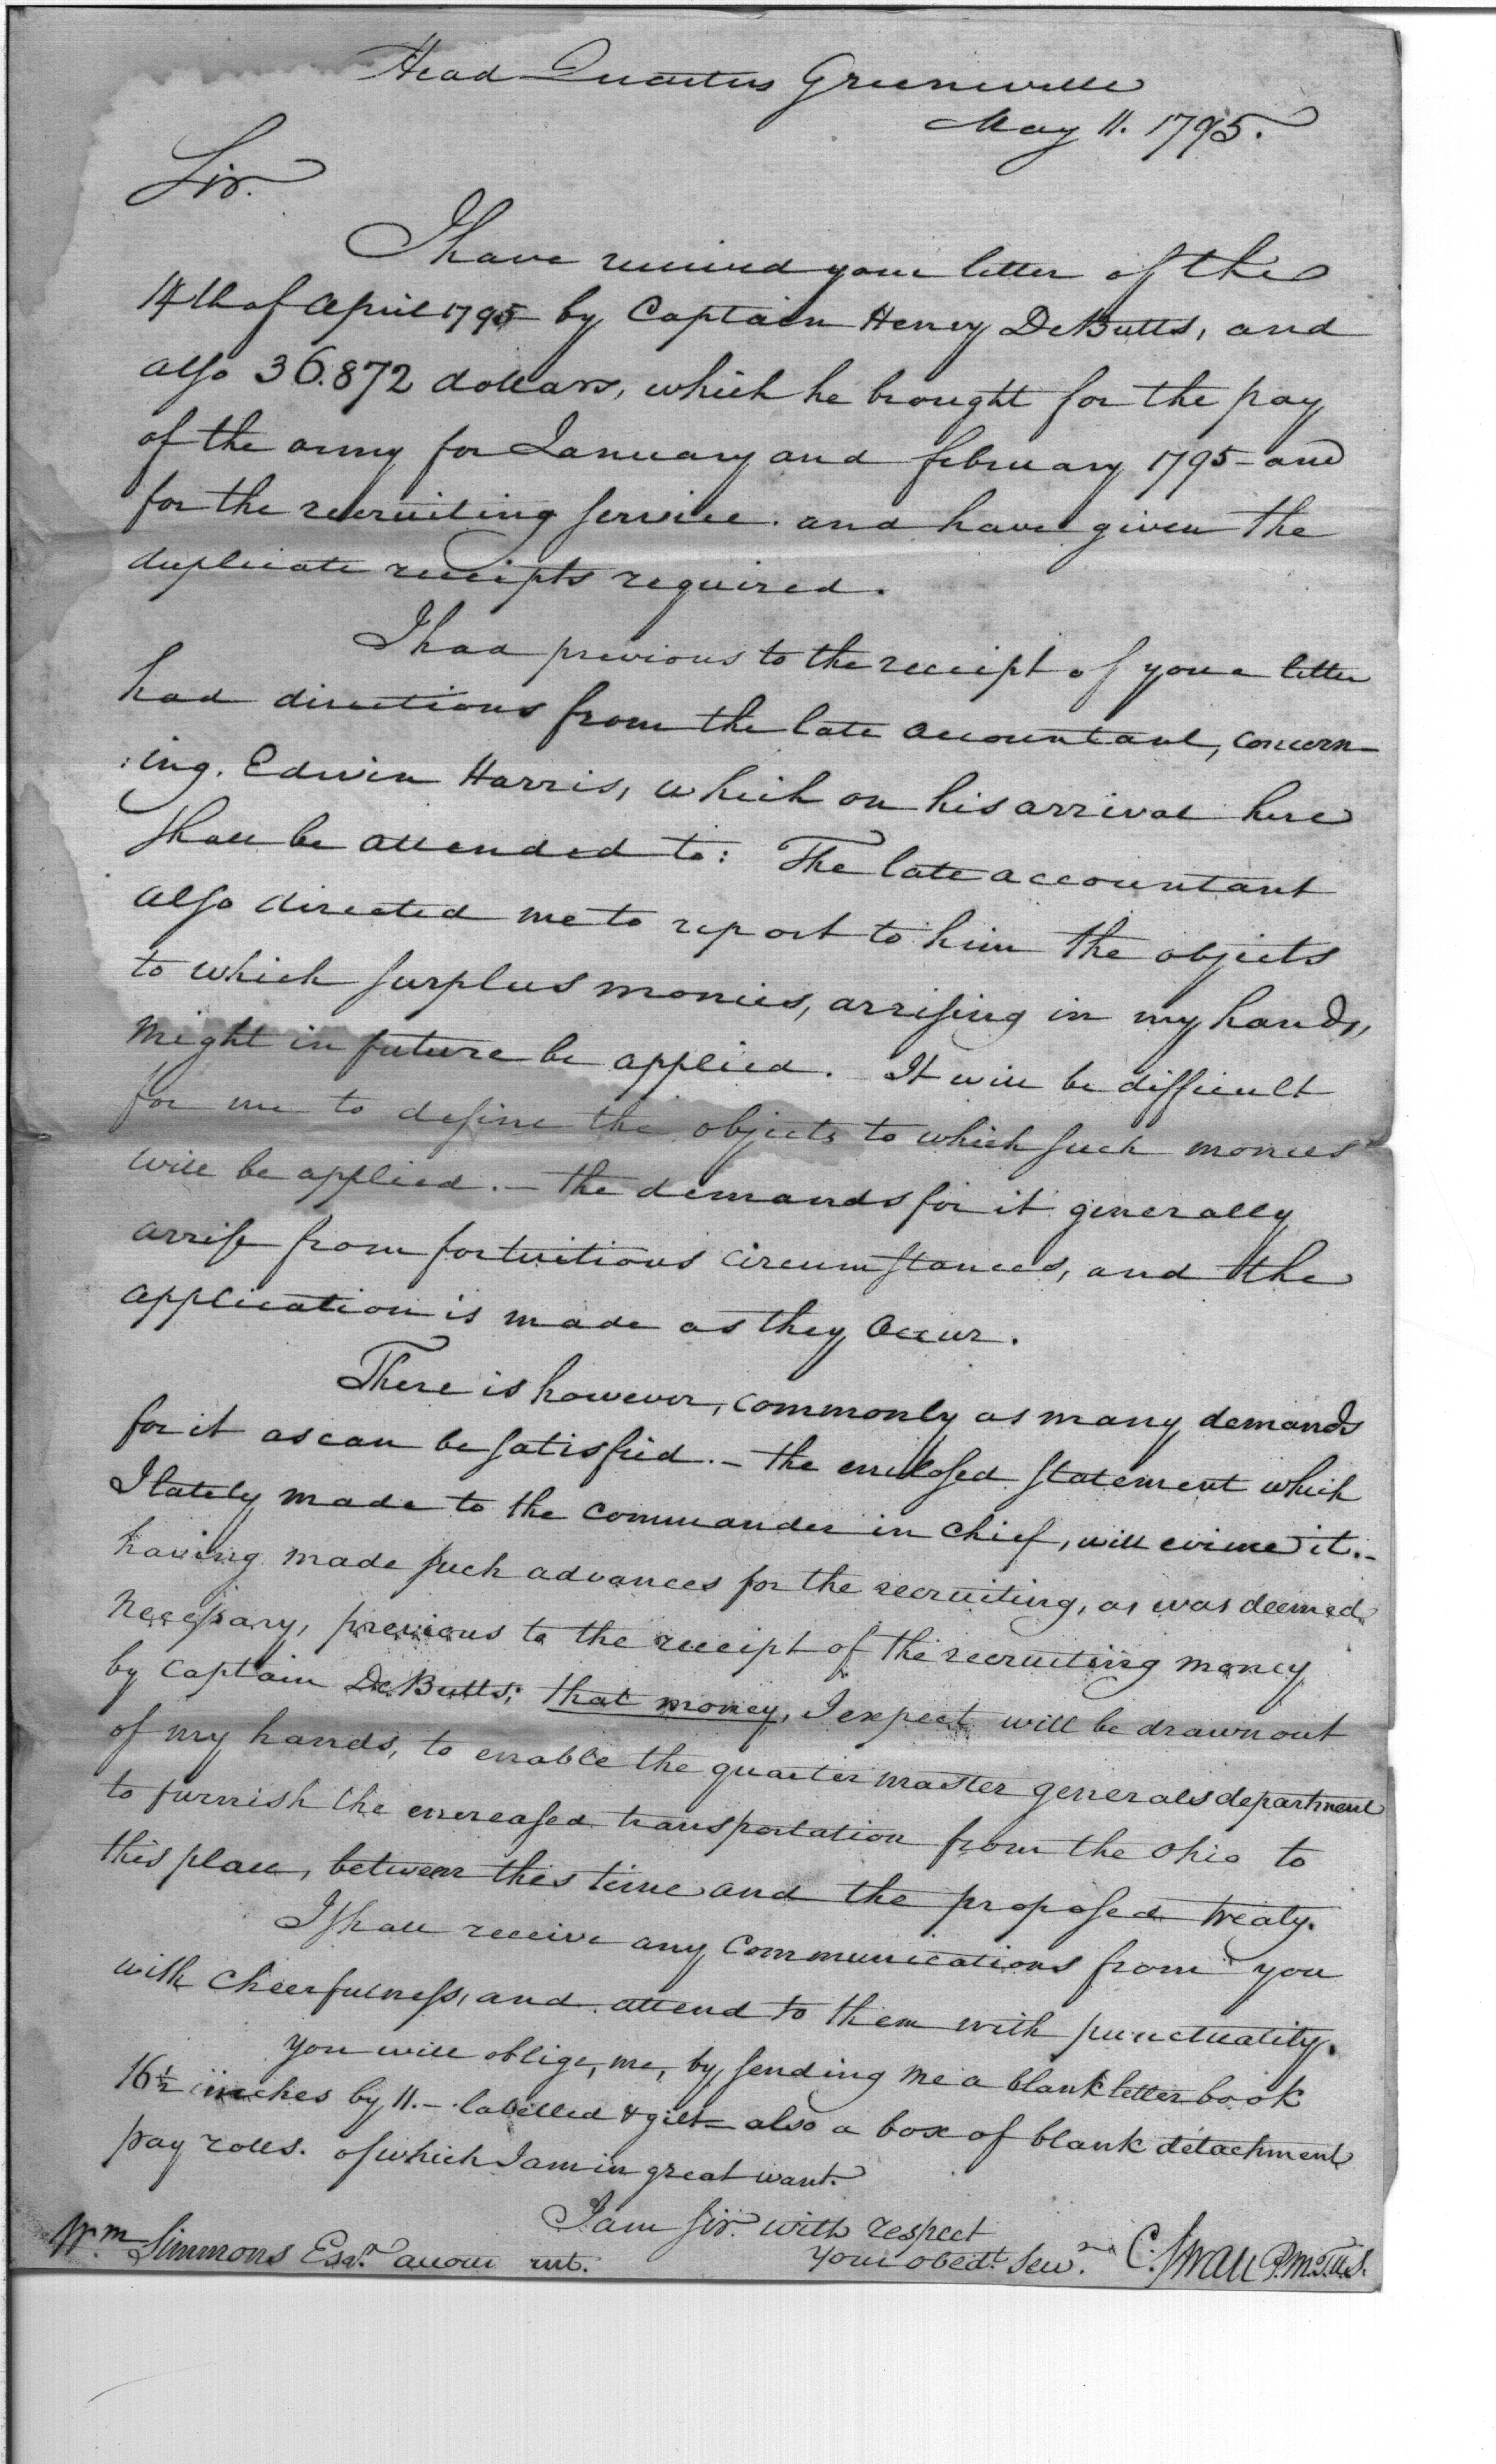 Head Quarters Greeneville
May 11. 1795.
Sir.
I have received your letter of the
14th of April 1795 by Captain Henry DeButts, and
also 36.872 dollars, which he brought for the pay
of the army for January and february 1795 - and
for the recruiting service. and have given the
duplicate receipts required.
I had previous to the receipt of your letter
had directions from the late accountant, concern-
:ing. Edwin Harris, which on his arrival here
shall be attended to: The late accountant
also directed me to report to him the objects
to which surplus monies, arrising in my hands,
might in future be applied. It will be difficult
for me to define the objects to which such monies
will be applied. - the demands for it generally
arrise from fortuitious circumstances, and the
application is made as they occur.
There is however, commonly as many demands
for it as can be satisfied. - the enclosed statement which
I lately made to the commander in chief, will evince it. -
having made such advances for the recruiting, as was deemed
necessary, previous to the receipt of the recruiting money
by Captain DeButts; that money, I expect will be drawn out
of my hands, to enable the quarter master generals department
to furnish the encreased transportation from the Ohio to
this place, between this time and the proposed treaty.
I shall receive any Communications from you
with cheerfulness, and attend to them with punctuality.
you will oblige, me, by sending me a blank letter book
16½ inches by 11. - labelled & gilt - also a box of blank detachment
pay rolls. of which I am in great want.
I am sir. with respect
your obedt. serv.
C. Swan P.M.T.U.S.
Wm Simmons Esqr. accountant.